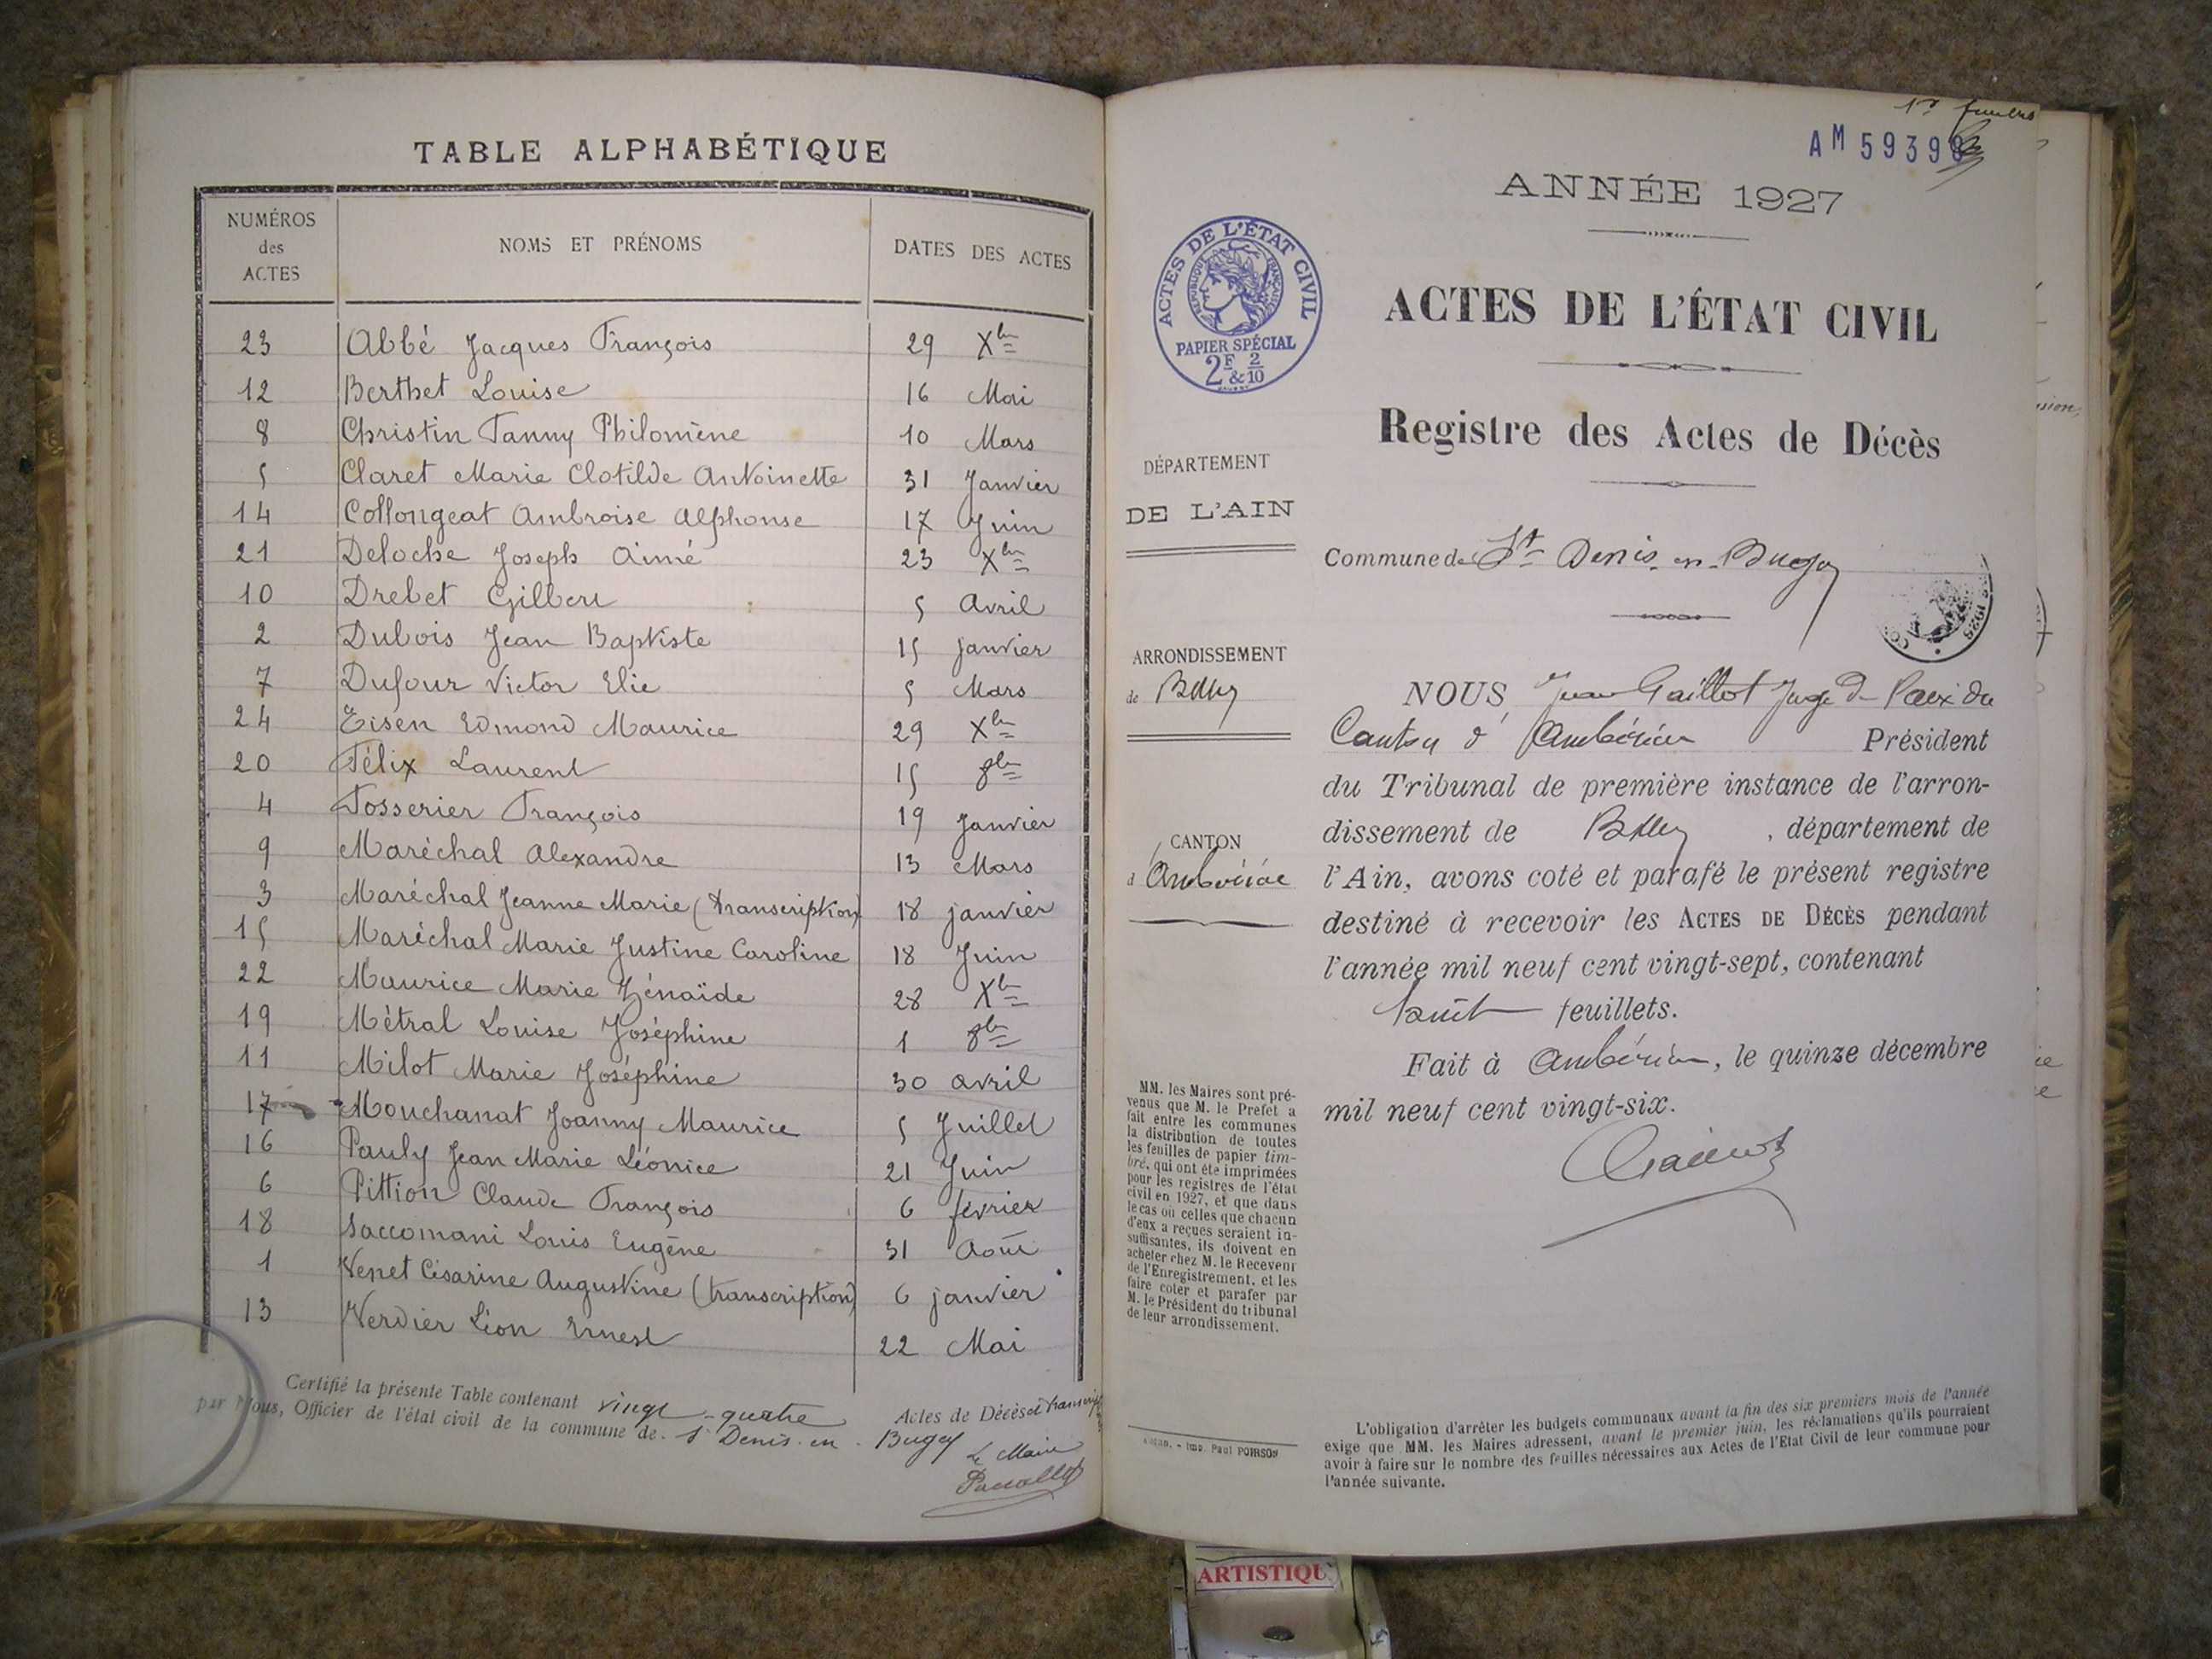 TABLE ALPHABÉTIQUE
NUMÉROS des ACTES NOMS ET PRÉNOMS DATES DES ACTES
23 Abbé Jacques François 29 Xbre
12 Berthet Louise 16 Mai
8 Christin Fanny Philomène 10 Mars
5 Claret Marie Clotilde Antoinette 31 Janvier
14 Collongeat Ambroise Alphonse 17 Juin
21 Deloche Joseph Aimé 23 Xbre
10 Drebet Gilbert 5 Avril
2 Dubois Jean Baptiste 15 janvier
7 Dufour Victor Elie 5 Mars
24 Eisen Edmond Maurice 29 Xbre
20 Félix Laurent 15 8bre
4 Fosserier François 19 Janvier
9 Maréchal Alexandre 13 Mars
3 Maréchal Jeanne Marie (transcription) 18 janvier
15 Maréchal Marie Justine Caroline 18 Juin
22 Maurice Marie Zénaïde 28 Xbre
19 Métral Louise Joséphine 1 8bre
11 Milot Marie Joséphine 30 avril
17 Mouchanat Joanny Maurice 5 Juillet
16 Pauly Jean Marie Léonice 21 Juin
6 Pittion Claude François 6 février
18 Saccomani Louis Eugène 31 Août
1 Venet Césarine Augustine (transcription) 6 janvier
13 Verdier Léon Ernest 22 Mai
Certifié la présente Table contenant vingt-quatre Actes de Décès et
par Nous, Officier de l'état civil de la commune de St Denis-en-Bugey
Le Maire
AM 5939
ANNÉE 1927
ACTES DE L'ÉTAT CIVIL
RÉPUBLIQUE FRANÇAISE
PAPIER SPÉCIAL
2F & 2/10
ACTES DE L'ÉTAT CIVIL
Registre des Actes de Décès
DÉPARTEMENT
DE L'AIN
Commune de St Denis-en-Bugey
ARRONDISSEMENT
de Belley
CANTON
d'Ambérieu
NOUS Jean Gaillot Juge de Paix du
Canton d'Ambérieu Président
du Tribunal de première instance de l'arron-
dissement de Belley, département de
l'Ain, avons coté et parafé le présent registre
destiné à recevoir les ACTES DE DÉCÈS pendant
l'année mil neuf cent vingt-sept, contenant
huit feuillets.
Fait à Ambérieu, le quinze décembre
mil neuf cent vingt-six.
Gaillot
MM. les Maires sont pré-
venus que M. le Préfet a
fait entre les communes
la distribution de toutes
les feuilles de papier tim-
bré, qui ont été imprimées
pour les registres de l'état
civil en 1927, et que dans
le cas où celles que chacun
d'eux a reçues seraient in-
suffisantes, ils doivent en
acheter chez M. le Receveur
de l'Enregistrement, et les
faire coter et parafer par
M. le Président du tribunal
de leur arrondissement.
Imp. Paul POIRSON
L'obligation d'arrêter les budgets communaux avant la fin des six premiers mois de l'année
exige que MM. les Maires adressent, avant le premier juin, les réclamations qu'ils pourraient
avoir à faire sur le nombre des feuilles nécessaires aux Actes de l'Etat Civil de leur commune pour
l'année suivante.
ARTISTIQU